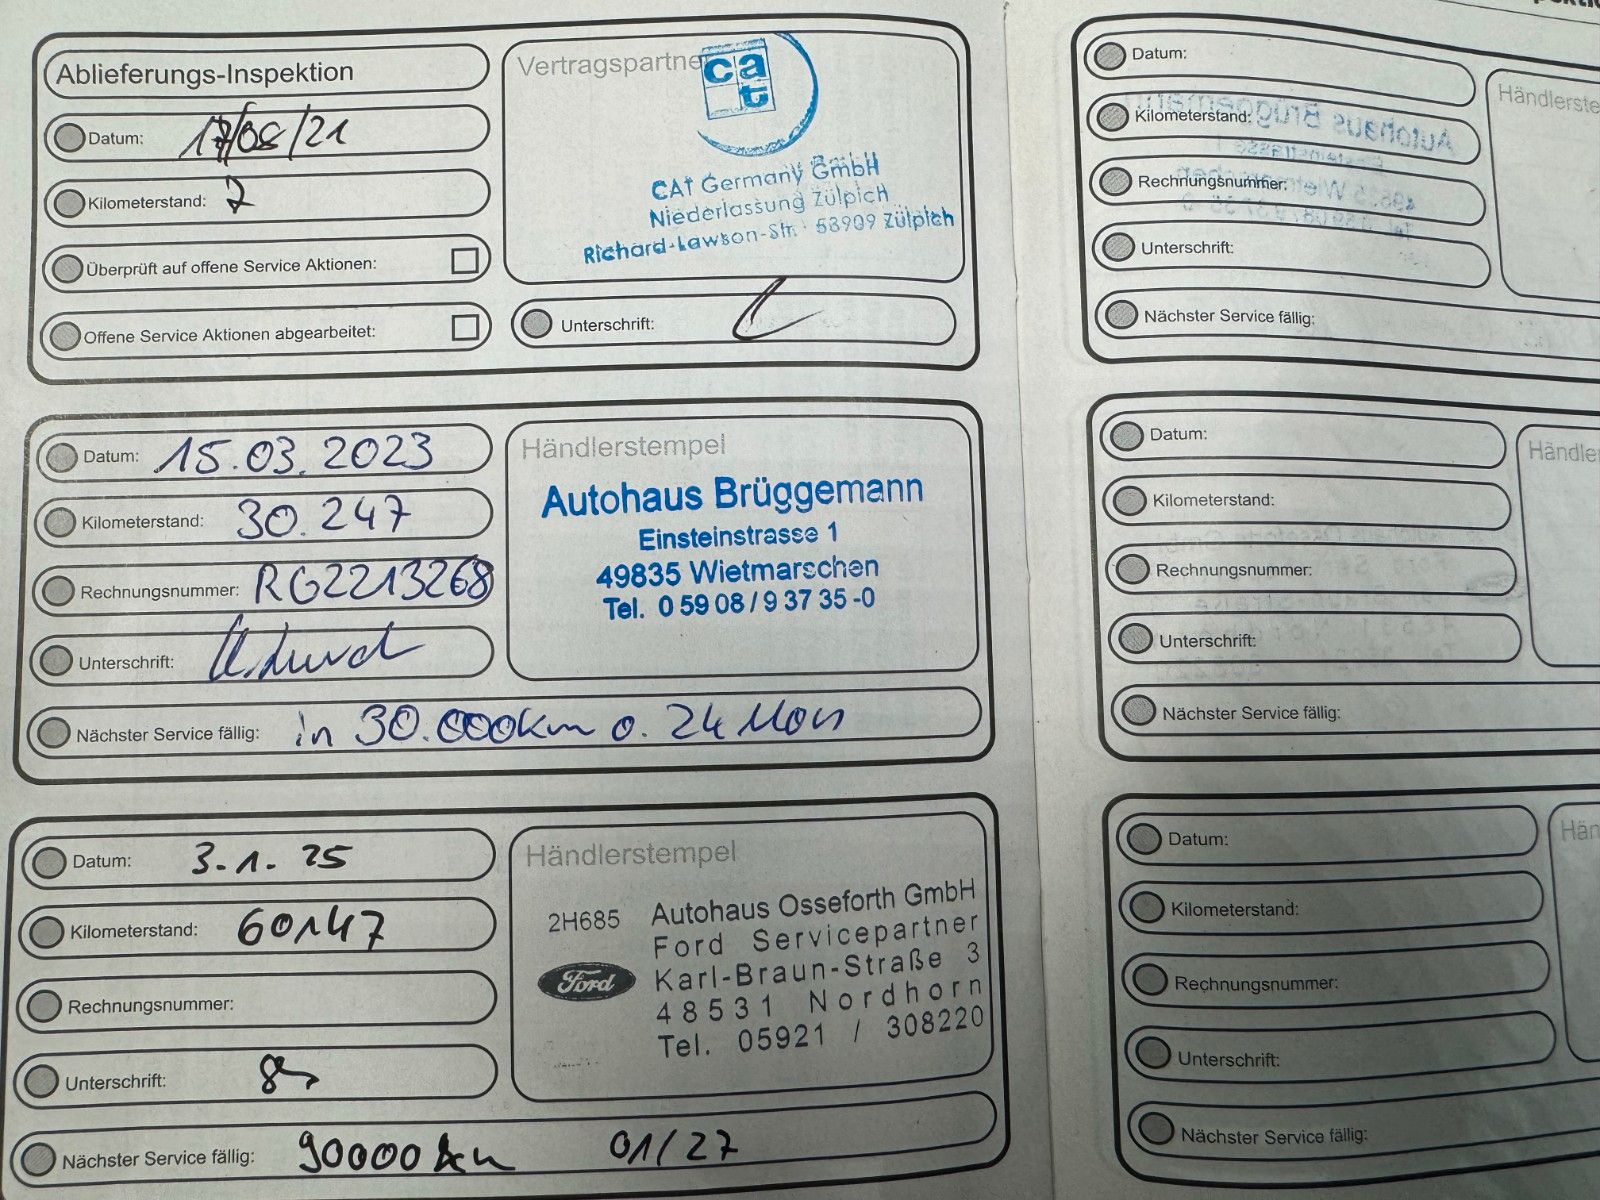 Ablieferungs-Inspektion
Datum: 17/08/21
Kilometerstand: 7
Überprüft auf offene Service Aktionen:
Offene Service Aktionen abgearbeitet:
Vertragspartner
cat
CAT Germany GmbH
Niederlassung Zülpich
Richard-Lawson-Str. 53909 Zülpich
Unterschrift:
Datum: 15.03.2023
Kilometerstand: 30.247
Rechnungsnummer: RG2213268
Unterschrift:
Nächster Service fällig: in 30.000km o. 24 Mon
Händlerstempel
Autohaus Brüggemann
Einsteinstrasse 1
49835 Wietmarschen
Tel. 0 59 08 / 9 37 35 -0
Datum: 3.1.25
Kilometerstand: 60147
Rechnungsnummer:
Unterschrift:
Nächster Service fällig: 90000 km 01/27
Händlerstempel
2H685
Ford
Autohaus Osseforth GmbH
Ford Servicepartner
Karl-Braun-Straße 3
48531 Nordhorn
Tel. 05921 / 308220
Datum:
Kilometerstand:
Rechnungsnummer:
Unterschrift:
Nächster Service fällig:
Händlerste
Datum:
Kilometerstand:
Rechnungsnummer:
Unterschrift:
Nächster Service fällig:
Händle
Datum:
Kilometerstand:
Rechnungsnummer:
Unterschrift:
Nächster Service fällig:
Hän